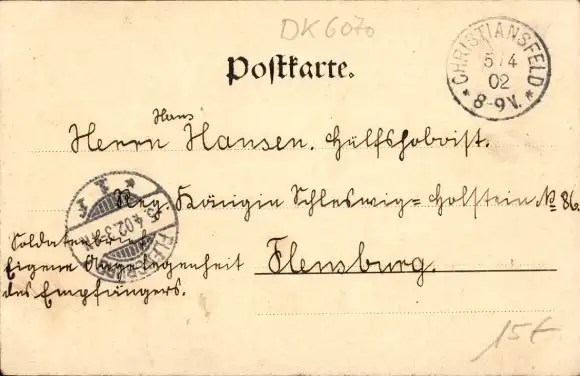 DK 6070
Postkarte.
CHRISTIANSFELD
5/4
02
* 8-9V. *
Hans
Herrn Hansen. Hülfshoboist.
Reg. Königin Schleswig=Holstein № 86.
Soldatenbrief
Eigene Angelegenheit Flensburg.
des Empfängers.
FLENSBURG
* 1 J
5.4.02.3-4N
15€